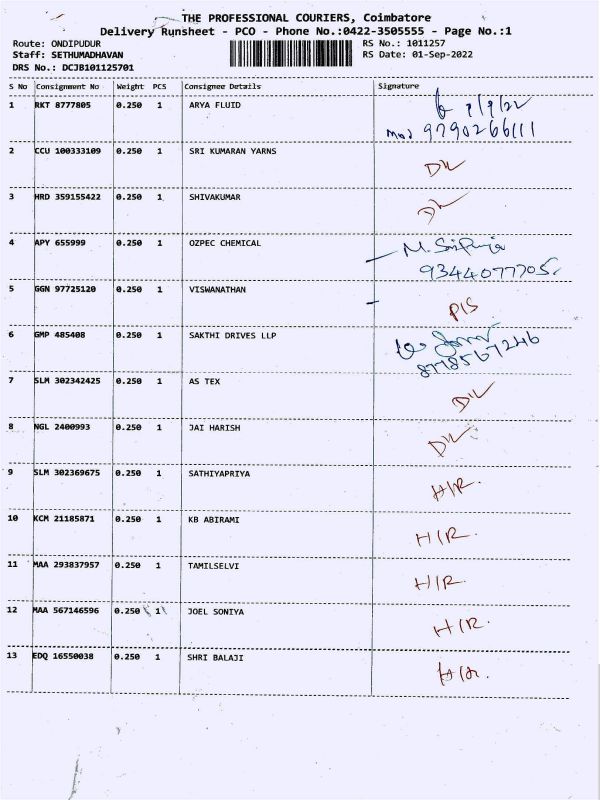 THE PROFESSIONAL COURIERS, Coimbatore
Delivery Runsheet - PCO - Phone No.:0422-3505555 - Page No.:1
Route: ONDIPUDUR RS No.: 1011257
Staff: SETHUMADHAVAN RS Date: 01-Sep-2022
DRS No.: DCJB101125701
S No Consignment No Weight PCS Consignee Details Signature
1 RKT 8777805 0.250 1 ARYA FLUID 1/9/22
9790266111
2 CCU 100333109 0.250 1 SRI KUMARAN YARNS D/L
3 HRD 359155422 0.250 1 SHIVAKUMAR D/L
4 APY 655999 0.250 1 OZPEC CHEMICAL
9344077705
5 GGN 97725120 0.250 1 VISWANATHAN P/S
6 GMP 485408 0.250 1 SAKTHI DRIVES LLP
8778567246
7 SLM 302342425 0.250 1 AS TEX D/L
8 NGL 2400993 0.250 1 JAI HARISH D/L
9 SLM 302369675 0.250 1 SATHIYAPRIYA H/R.
10 KCM 21185871 0.250 1 KB ABIRAMI H/R.
11 MAA 293837957 0.250 1 TAMILSELVI H/R.
12 MAA 567146596 0.250 1 JOEL SONIYA H/R.
13 EDQ 16550038 0.250 1 SHRI BALAJI H/R.